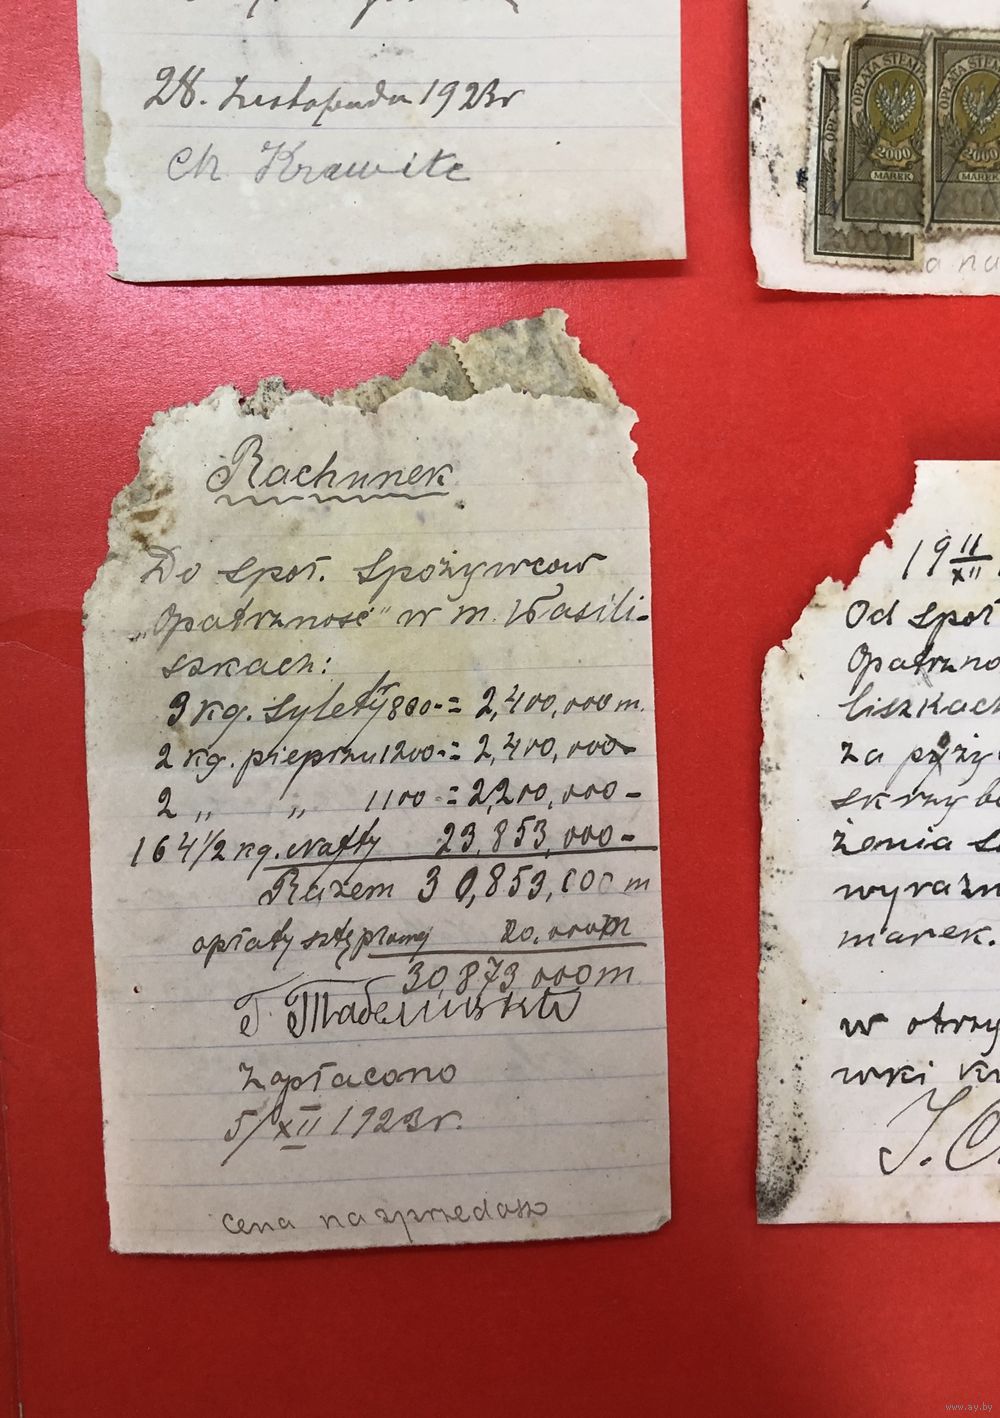 28. Listopada 1923r
Ch Krawitc
OPŁATA STEMP
2000
MAREK
2000
OPŁATA STEMP
2000
MAREK
200
a na
Rachunek
Do Społ. Spożywców
„Opatrzność" w m. Wasili-
szkach:
3 kg. Sylety 800-= 2,400,000 m.
2 kg. pieprzu 1200-= 2,400,000-
2 „ „ 1100-= 2,200,000-
164 1/2 kg. Nafty 23,853,000-
Razem 30,853,000 m
opłaty stęplowej 20.000 m
30,873,000 m
Zapłacono
5/XII 1923r.
cena na sprzedasz
19 11/XII
Od Społ
Opatrzno
liszkach
za
skrzyb
żenia
wyraźn
marek.
w otrzy
wki
J. O
www.ay.by